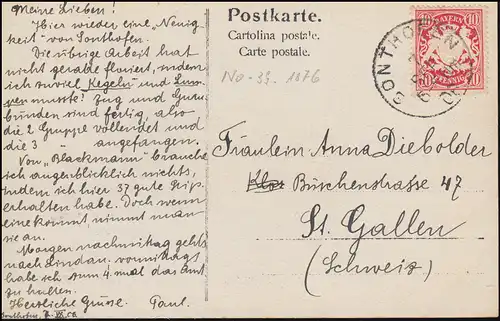 Meine Lieben!
Hier wieder eine Neuig
keit von Sonthofen.
Die übrige Arbeit hat
nicht gerade floriert, indem
ich zuviel Kegeln und Lum
pen musste! Zug und
bünden sind fertig, also
die 2 Gruppe vollendet und
die 3 " angefangen.
Von „Blackmann" brauche
ich augenblicklich nichts,
indem ich hier 37 gute
erhalten habe. Doch wenn
eine kommt, nimmt man
sie an.
Morgen nachmittag gehts
nach Lindau. vormittags
habe ich zum 4. mal das Amt
zu halten.
Herzliche Grüsse. Paul.
Sonthofen,
Postkarte.
Cartolina postale.
Carte postale.
No-39. 1876
BAYERN
10 10
10 10
PFENNIG
SONTHOFEN
Fräulein Anna Diebolder
Büschenstrasse 47
St. Gallen
(Schweiz)